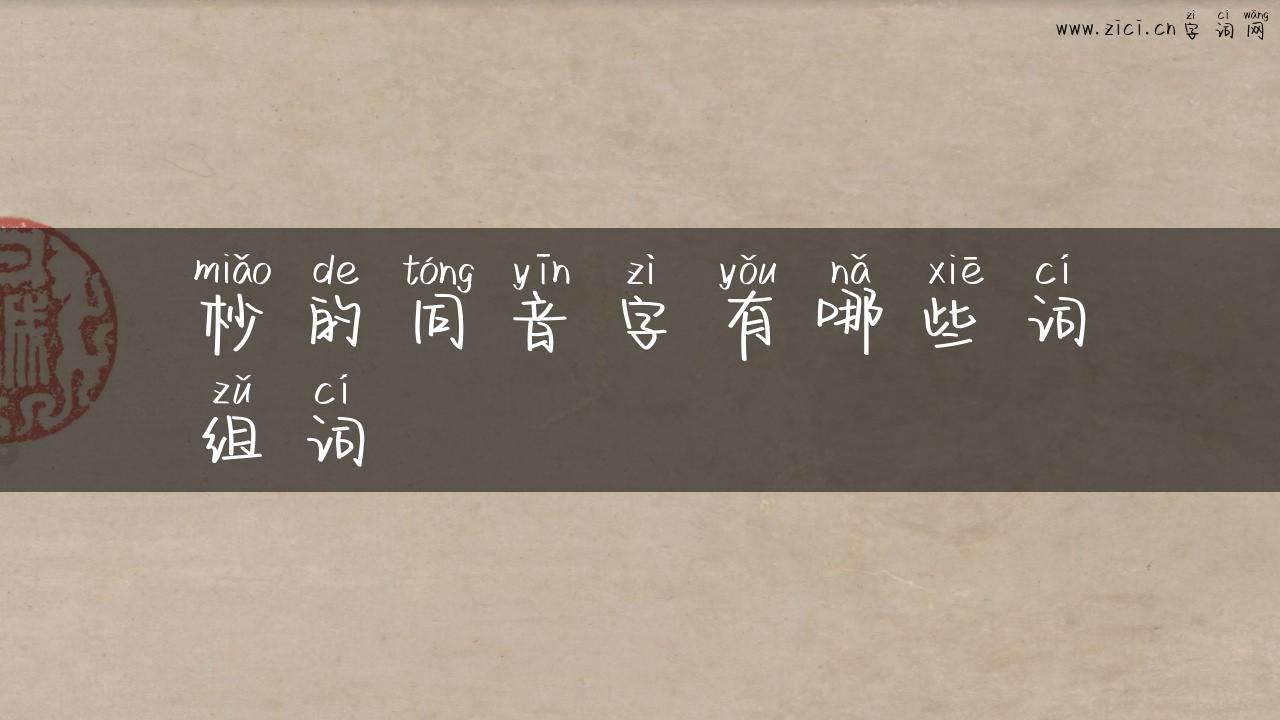 www.zici.cn 字词网
zì cí wǎng
miǎo de tóng yīn zì yǒu nǎ xiē cí
杪的同音字有哪些词
zǔ cí
组词